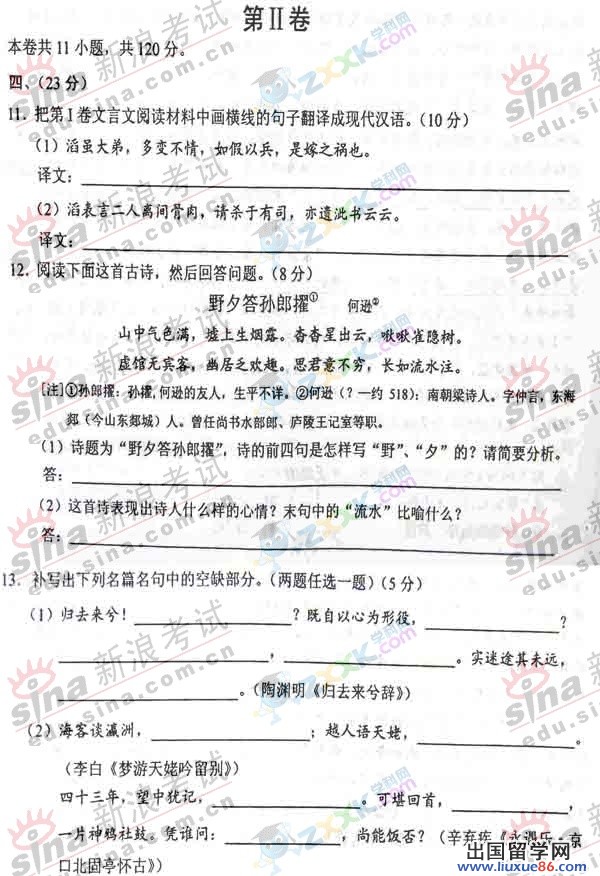 第Ⅱ卷
本卷共11小题，共120分。
四、（23分）
11. 把第Ⅰ卷文言文阅读材料中画横线的句子翻译成现代汉语。（10分）
（1）滔虽大弟，多变不情，如假以兵，是嫁之祸也。
译文：
（2）滔表言二人离间骨肉，请杀于有司，亦遗泚书云云。
译文：
12. 阅读下面这首古诗，然后回答问题。（8分）
野夕答孙郎擢① 何逊②
山中气色满，墟上生烟露。杳杳星出云，啾啾雀隐树。
虚馆无宾客，幽居乏欢趣。思君意不穷，长如流水注。
[注]①孙郎擢：孙擢，何逊的友人，生平不详。②何逊（？一约518）：南朝梁诗人。字仲言，东海
郯（今山东郯城）人。曾任尚书水部郎、庐陵王记室等职。
（1）诗题为“野夕答孙郎擢”，诗的前四句是怎样写“野”、“夕”的？请简要分析。
答：
（2）这首诗表现出诗人什么样的心情？末句中的“流水”比喻什么？
答：
13. 补写出下列名篇名句中的空缺部分。（两题任选一题）（5分）
（1）归去来兮！？既自以心为形役，？
，。实迷途其未远，
。（陶渊明《归去来兮辞》）
（2）海客谈瀛洲，；越人语天姥，。
（李白《梦游天姥吟留别》）
四十三年，望中犹记，。可堪回首，，
一片神鸦社鼓。凭谁问：，尚能饭否？（辛弃疾《永遇乐·京
口北固亭怀古》）
新浪考试
sina
edu.sina.com.cn
ZXXK
学科网
.COM
出国留学网
www.liuxue86.com